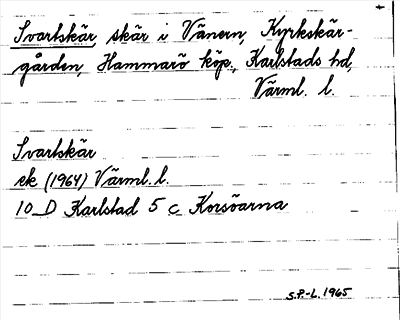 Svartskär, skär i Vänern, Kyrkskär-
gården, Hammarö köp., Karlstads hd,
Värml. l.
Svartskär
ek (1964) Värml. l.
10 D Karlstad 5 c Korsöarna
S.P.-L. 1965